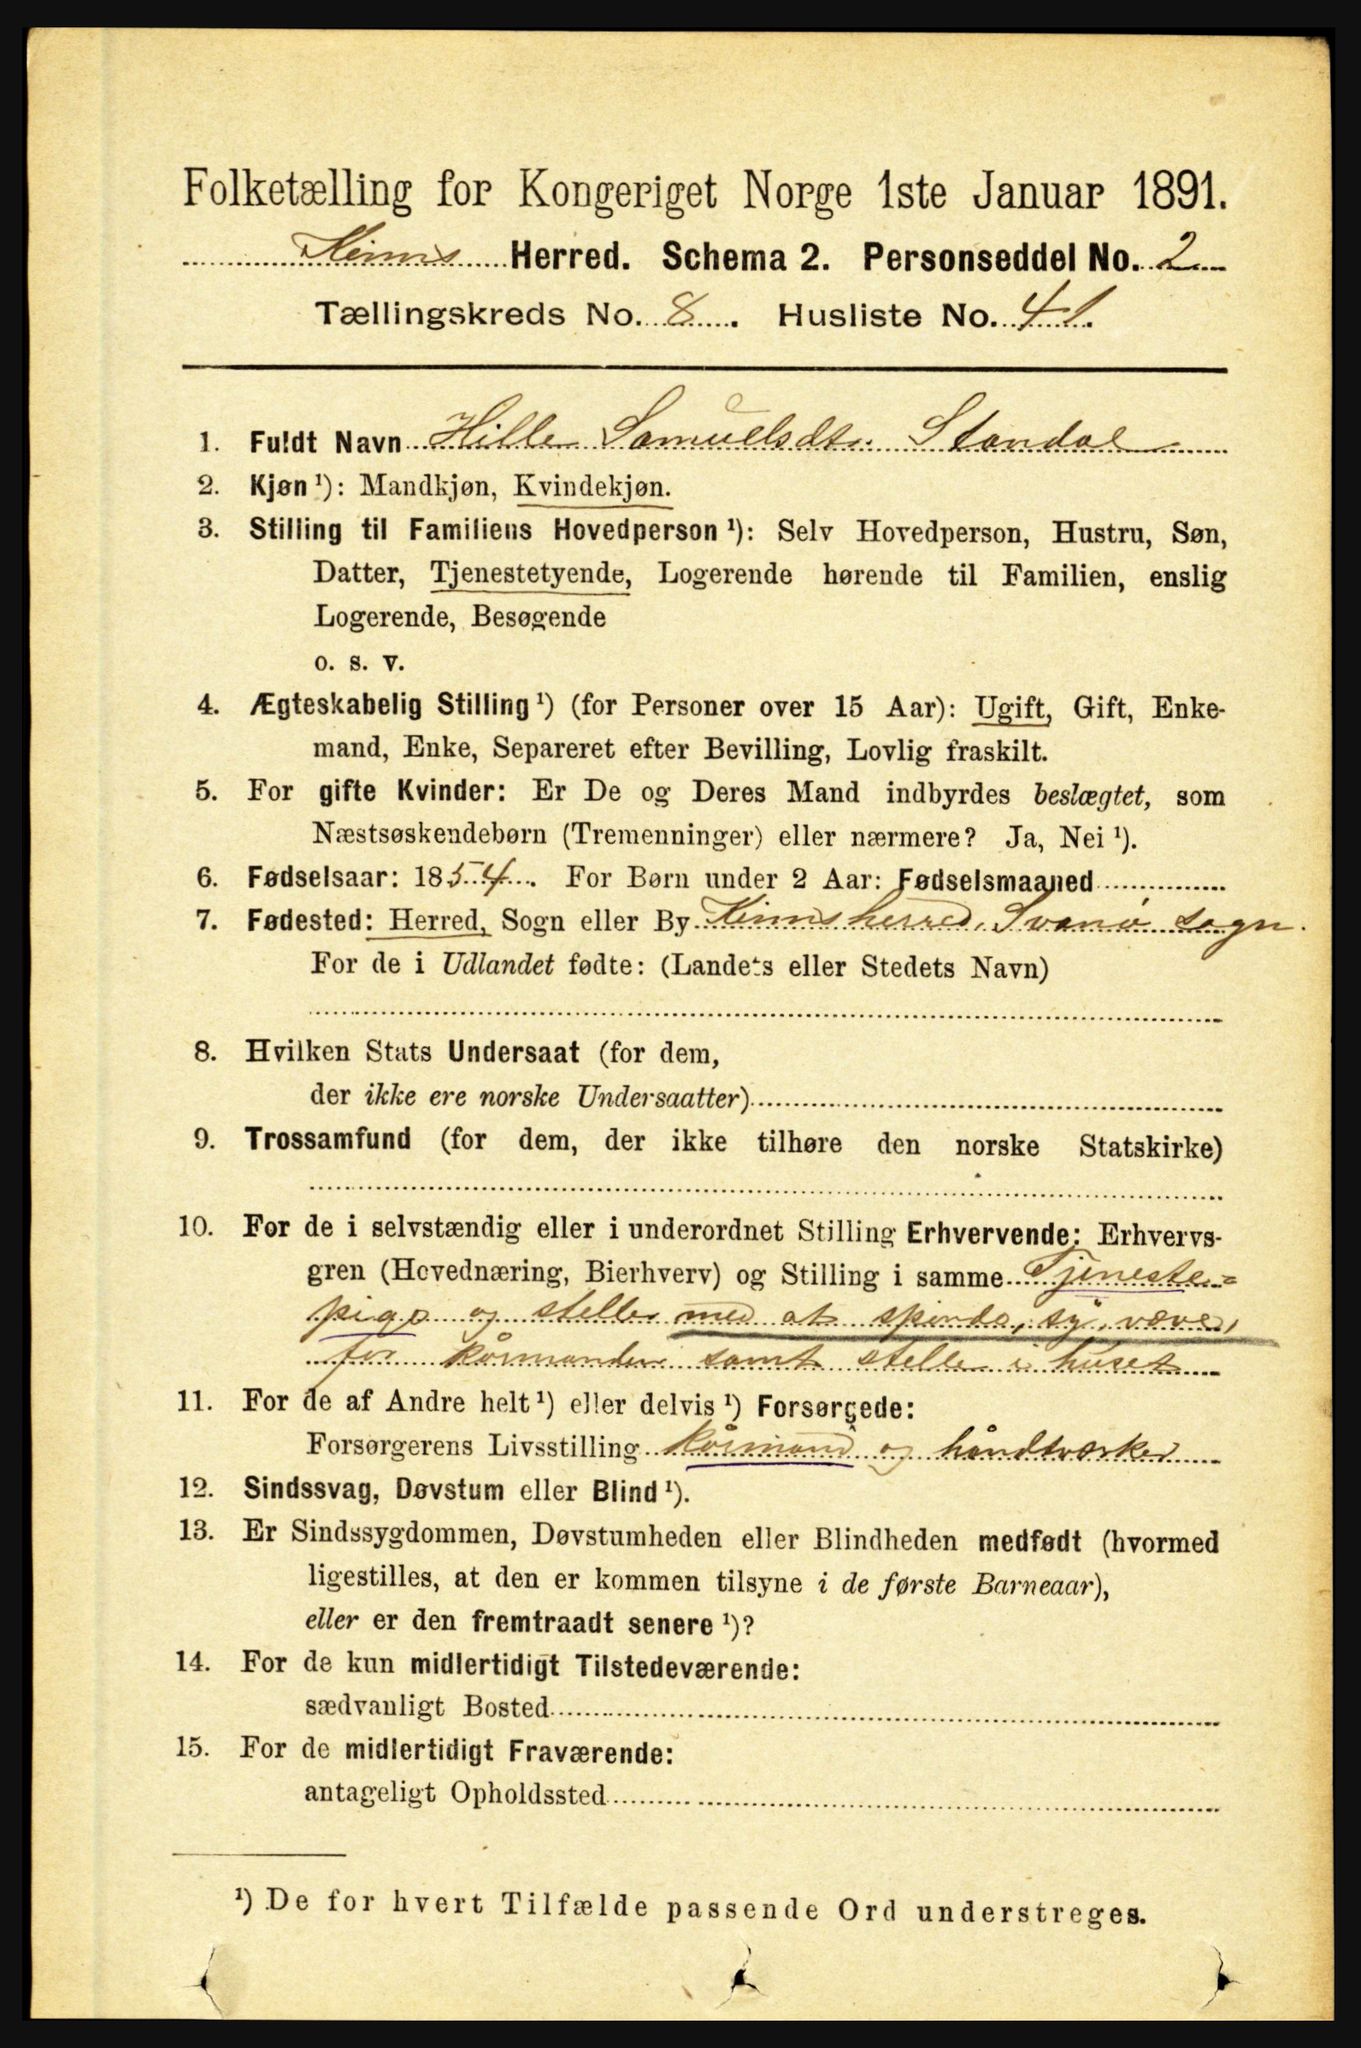 Folketælling for Kongeriget Norge 1ste Januar 1891.
Kinns Herred. Schema 2. Personseddel No. 2
Tællingskreds No. 8. Husliste No. 41.
1. Fuldt Navn Hille Samuelsdtr. Standal
2. Kjøn ¹): Mandkjøn, Kvindekjøn.
3. Stilling til Familiens Hovedperson ¹): Selv Hovedperson, Hustru, Søn,
Datter, Tjenestetyende, Logerende hørende til Familien, enslig
Logerende, Besøgende
o. s. v.
4. Ægteskabelig Stilling ¹) (for Personer over 15 Aar): Ugift, Gift, Enke-
mand, Enke, Separeret efter Bevilling, Lovlig fraskilt.
5. For gifte Kvinder: Er De og Deres Mand indbyrdes beslægtet, som
Næstsøskendebørn (Tremenninger) eller nærmere? Ja, Nei ¹).
6. Fødselsaar: 1854. For Børn under 2 Aar: Fødselsmaaned
7. Fødested: Herred, Sogn eller By Kinnsherred, Svanø sogn.
For de i Udlandet fødte: (Landets eller Stedets Navn)
8. Hvilken Stats Undersaat (for dem,
der ikke ere norske Undersaatter)
9. Trossamfund (for dem, der ikke tilhøre den norske Statskirke)
10. For de i selvstændig eller i underordnet Stilling Erhvervende: Erhvervs-
gren (Hovednæring, Bierhverv) og Stilling i samme Tjeneste=
pige og steller med at spinde, sy, væve,
for kårmanden samt stelle i huset
11. For de af Andre helt ¹) eller delvis ¹) Forsørgede:
Forsørgerens Livsstilling kårmand og håndtværker
12. Sindssvag, Døvstum eller Blind ¹).
13. Er Sindssygdommen, Døvstumheden eller Blindheden medfødt (hvormed
ligestilles, at den er kommen tilsyne i de første Barneaar),
eller er den fremtraadt senere ¹)?
14. For de kun midlertidigt Tilstedeværende:
sædvanligt Bosted
15. For de midlertidigt Fraværende:
antageligt Opholdssted
¹) De for hvert Tilfælde passende Ord understreges.